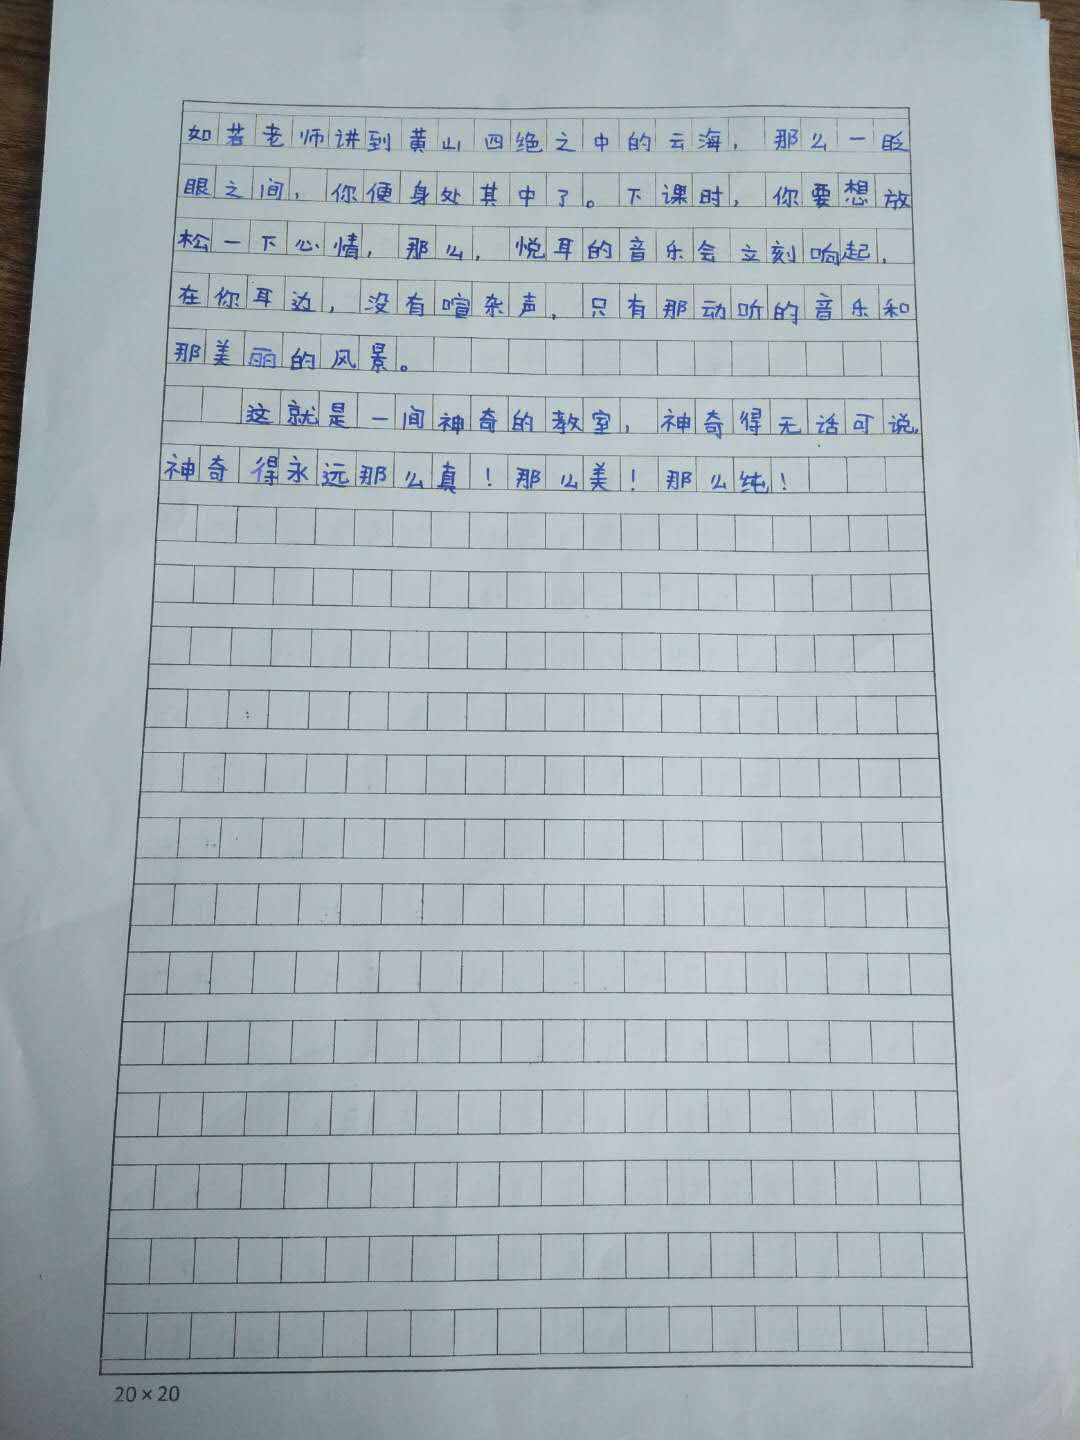 如若老师讲到黄山四绝之中的云海，那么一眨
眼之间，你便身处其中了。下课时，你要想放
松一下心情，那么，悦耳的音乐会立刻响起，
在你耳边，没有喧杂声，只有那动听的音乐和
那美丽的风景。
这就是一间神奇的教室，神奇得无话可说，
神奇得永远那么真！那么美！那么纯！
20×20